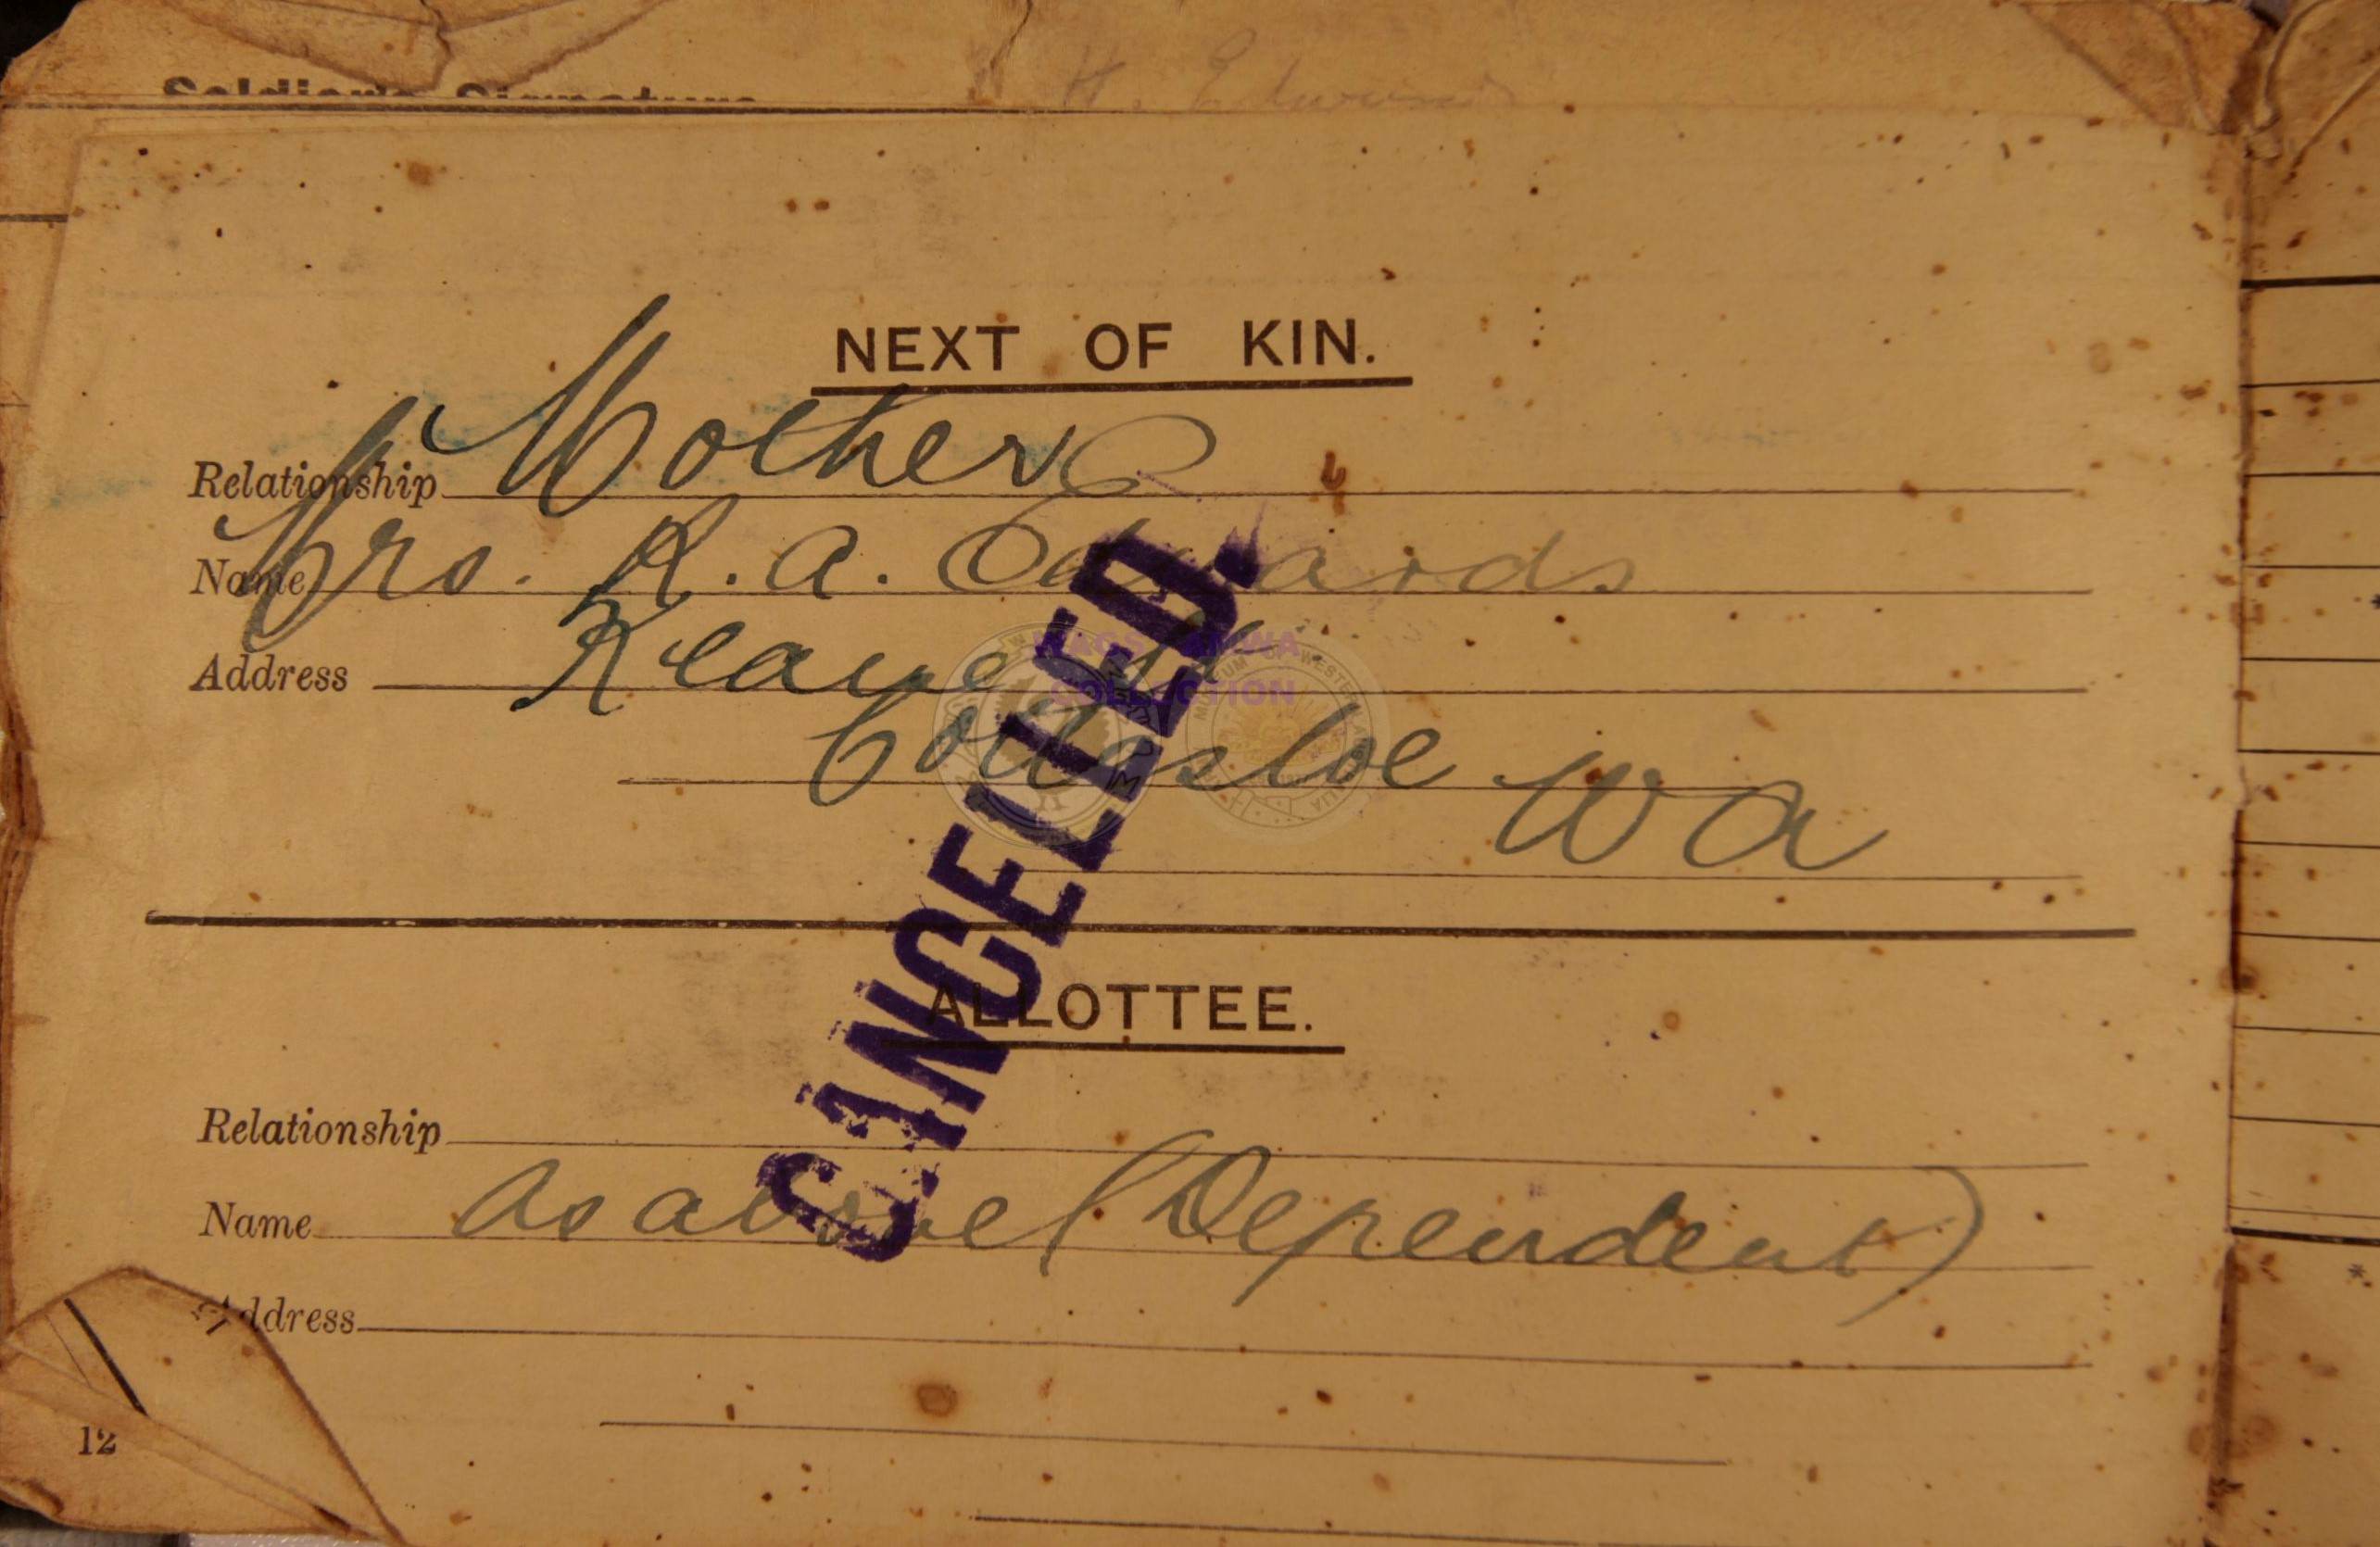 Soldier's Signature H. Edwards
NEXT OF KIN.
Relationship Mother
Name Mrs. R. A. Edwards
Address Keane St
Cottesloe W A
CANCELLED.
WAGS AMWA
COLLECTION
ALLOTTEE.
Relationship
Name As above (Dependent)
Address
12